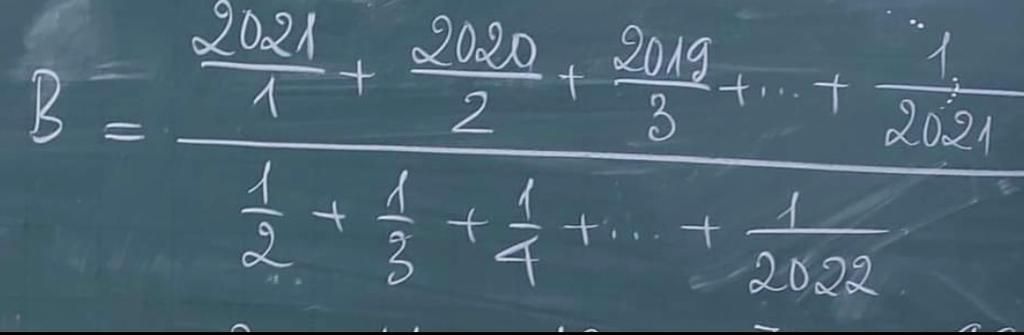 B = \frac{\frac{2021}{1} + \frac{2020}{2} + \frac{2019}{3} + \dots + \frac{1}{2021}}{\frac{1}{2} + \frac{1}{3} + \frac{1}{4} + \dots + \frac{1}{2022}}